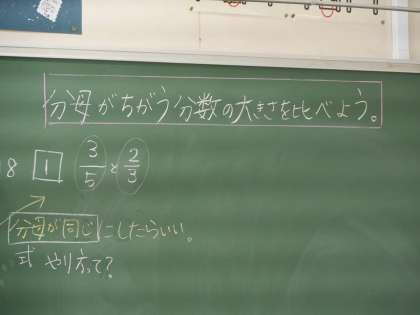 分母がちがう分数の大きさを比べよう。
18 1 3/5 と 2/3
分母が同じにしたらいい。
式 やり方って?